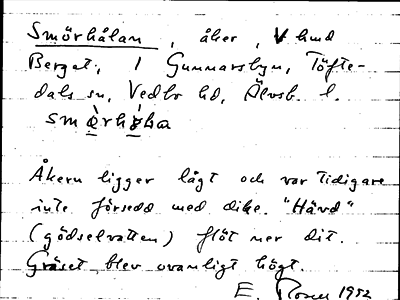 Smörhålan, åker, V hmd
Berget, 1 Gunnarsbyn, Töfte-
dals sn, Vedbo hd, Älvsb. l.
smørhøha
Åkern ligger lågt och var tidigare
inte försedd med dike. "Hävd"
(gödselvatten) flöt ner dit.
Gräset blev ovanligt högt.
E. 1952